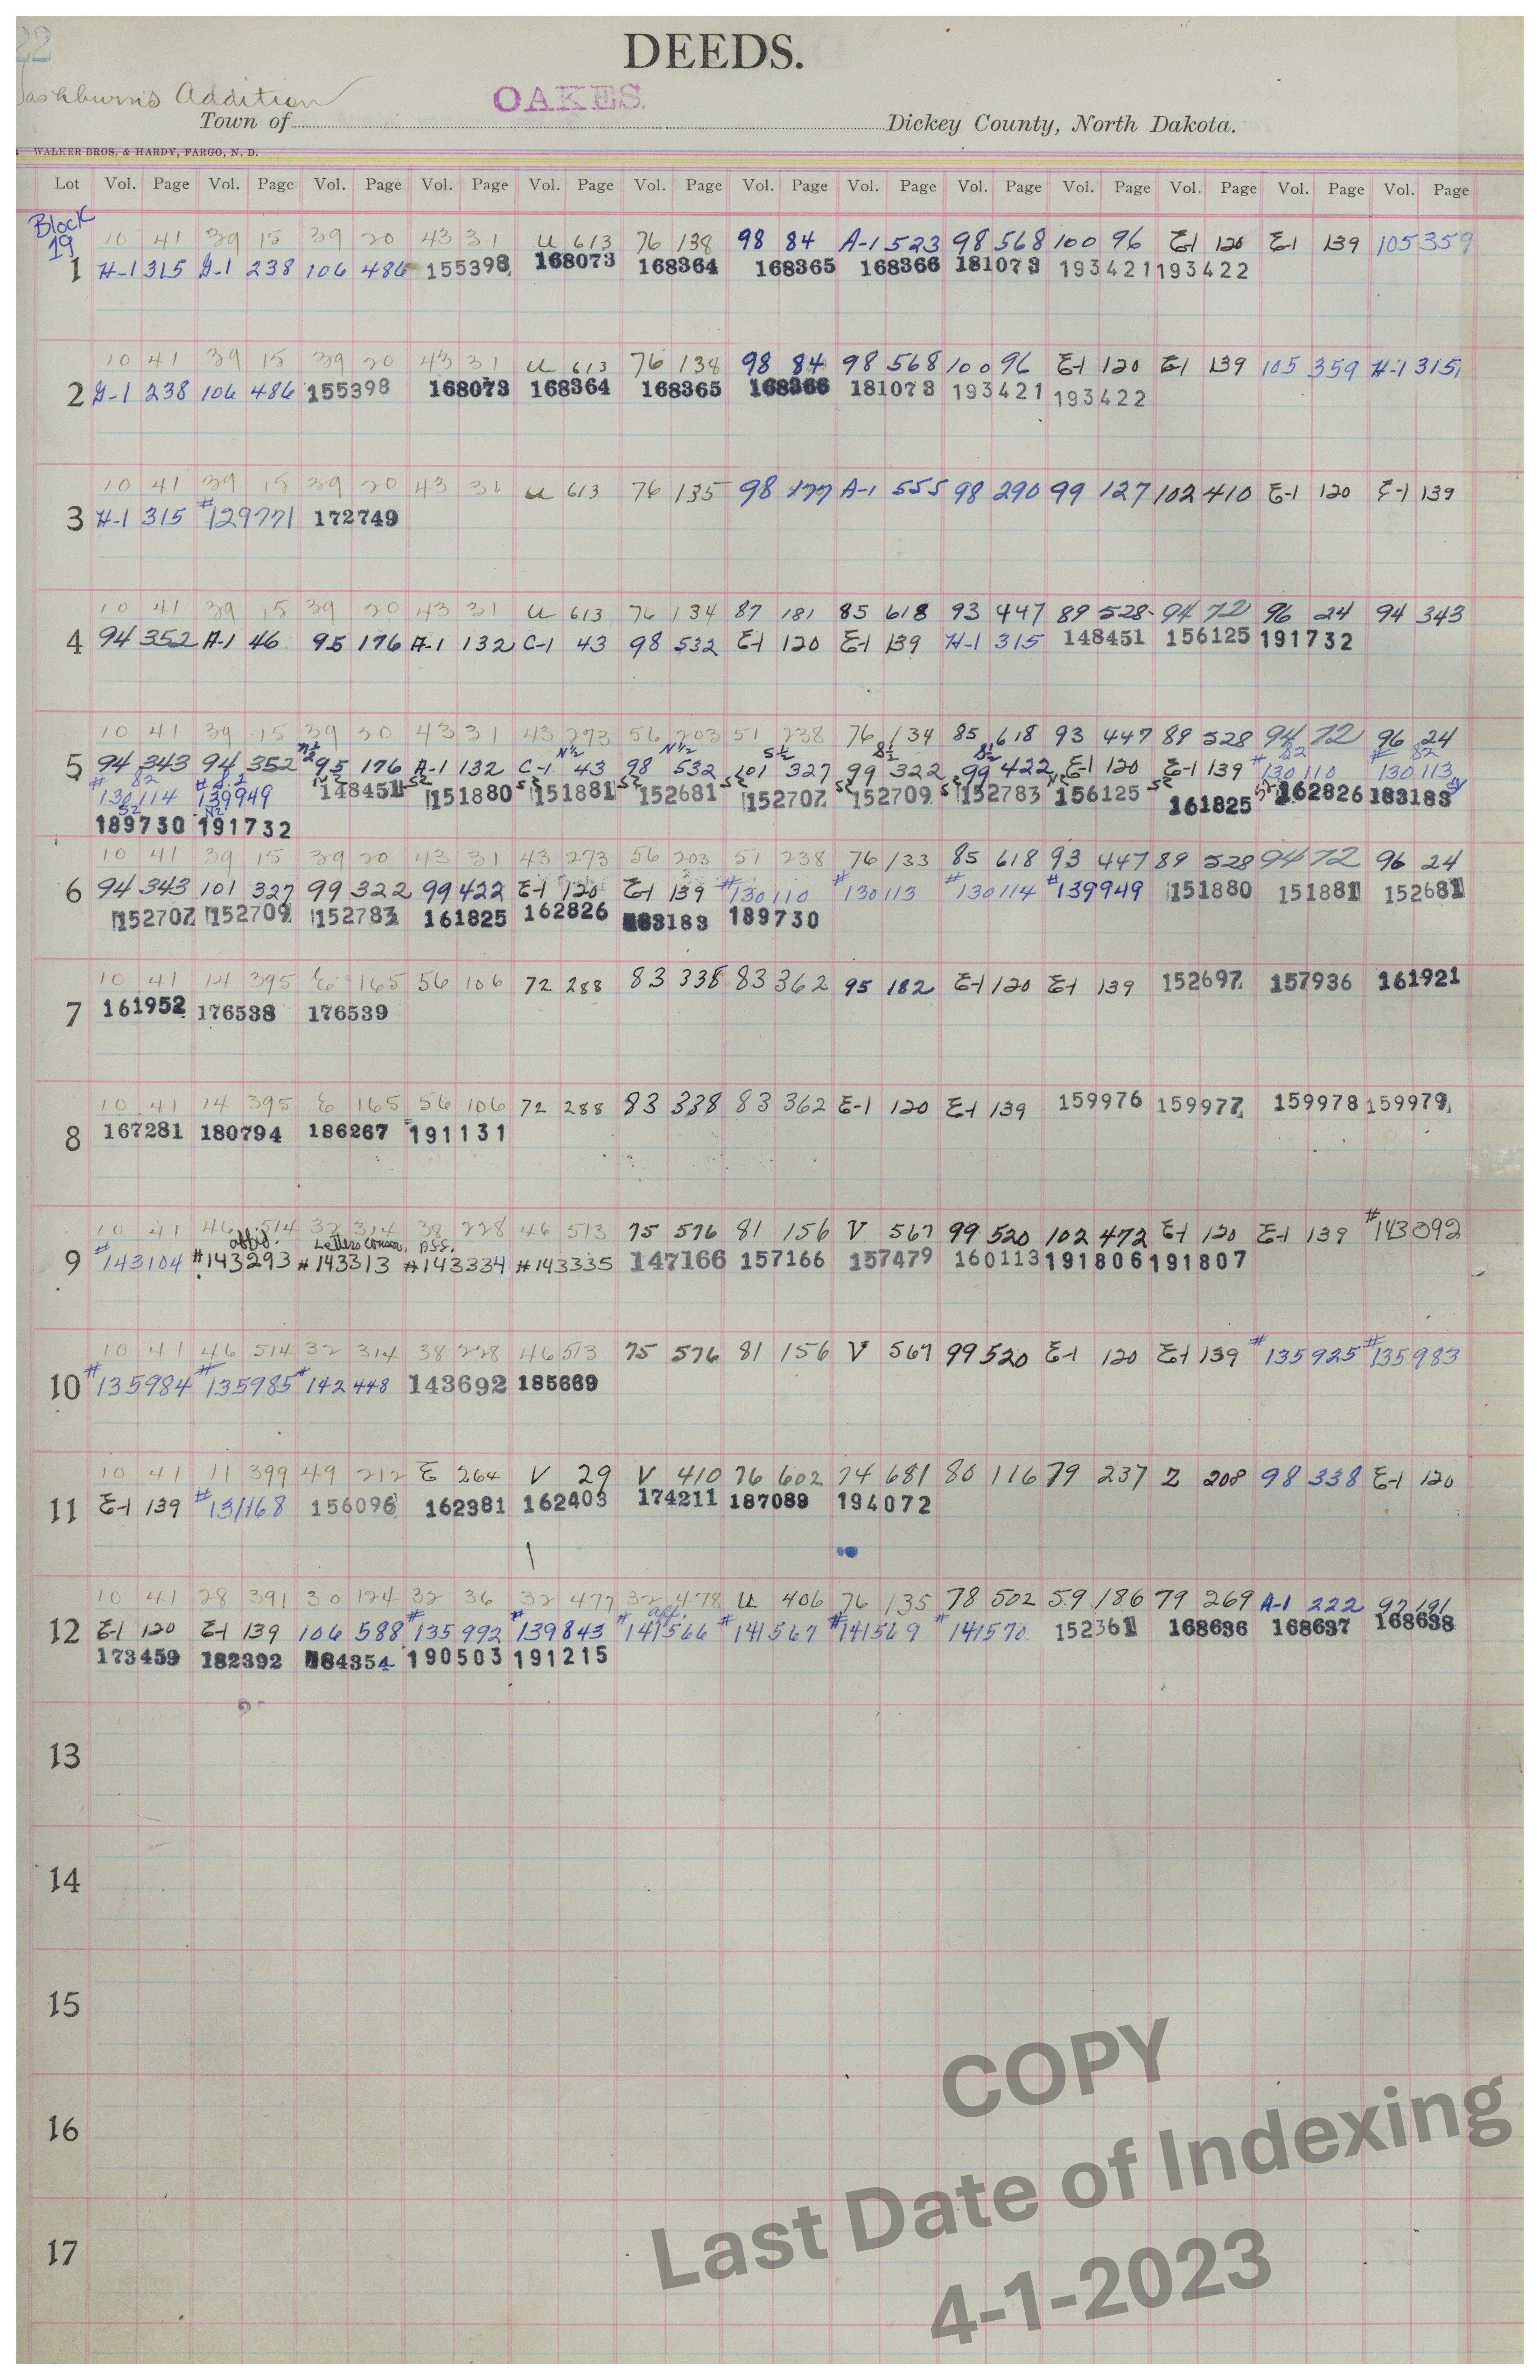 22
DEEDS.
Washburn's Addition
OAKES.
Town of Dickey County, North Dakota.
WALKER BROS. & HARDY, FARGO, N. D.
Lot Vol. Page Vol. Page Vol. Page Vol. Page Vol. Page Vol. Page Vol. Page Vol. Page Vol. Page Vol. Page Vol. Page Vol. Page Vol. Page
Block
19 10 41 39 15 39 20 43 31 U 613 76 138 98 84 A-1 523 98 568 100 96 E-1 120 E-1 139 105 359
1 H-1 315 G-1 238 106 486 155398 168073 168364 168365 168366 181073 193421 193422
10 41 39 15 39 20 43 31 U 613 76 138 98 84 98 568 100 96 E-1 120 E-1 139 105 359 H-1 315
2 G-1 238 106 486 155398 168073 168364 168365 168366 181073 193421 193422
10 41 39 15 39 20 43 31 U 613 76 135 98 177 A-1 555 98 290 99 127 102 410 E-1 120 E-1 139
3 H-1 315 #129771 172749
10 41 39 15 39 20 43 31 U 613 76 134 87 181 85 618 93 447 89 528 94 72 96 24 94 343
4 94 352 A-1 46 95 176 A-1 132 C-1 43 98 532 E-1 120 E-1 139 H-1 315 148451 156125 191732
10 41 39 15 39 20 43 31 43 273 56 203 51 238 76 134 85 618 93 447 89 528 94 72 96 24
N½ N½ N½ S½ S½ S½ S2 S2
5 94 343 94 352 95 176 A-1 132 C-1 43 98 532 101 327 99 322 99 422 E-1 120 E-1 139 #130110 #130113
S2 S2 N2 S2 S2 S2 S2 S2 S2 N2 S2 S2 SY
#130114 #139949 148451 151880 151881 152681 152707 152709 152783 156125 161825 162826 183183
S2 N2
189730 191732
10 41 39 15 39 20 43 31 43 273 56 203 51 238 76 133 85 618 93 447 89 528 94 72 96 24
6 94 343 101 327 99 322 99 422 E-1 120 E-1 139 #130110 #130113 #130114 #139949 151880 151881 152681
152707 152709 152783 161825 162826 183183 189730
10 41 14 395 E 165 56 106 72 288 83 338 83 362 95 182 E-1 120 E-1 139 152697 157936 161921
7 161952 176538 176539
10 41 14 395 E 165 56 106 72 288 83 338 83 362 E-1 120 E-1 139 159976 159977 159978 159979
8 167281 180794 186267 191131
10 41 46 514 32 314 38 228 46 513 75 576 81 156 V 567 99 520 102 472 E-1 120 E-1 139 #143092
affid. Letters Conser. Ass.
9 #143104 #143293 #143313 #143334 #143335 147166 157166 157479 160113 191806 191807
10 41 46 514 32 314 38 228 46 513 75 576 81 156 V 567 99 520 E-1 120 E-1 139 #135925 #135983
10 #135984 #135985 #142448 143692 185669
10 41 11 399 49 212 E 264 V 29 V 410 76 602 74 681 80 116 79 237 Z 208 98 338 E-1 120
11 E-1 139 #131168 156096 162381 162403 174211 187089 194072
10 41 28 391 30 124 32 36 32 477 32 478 U 406 76 135 78 502 59 186 79 269 A-1 222 92 191
aff.
12 E-1 120 E-1 139 106 588 #135992 #139843 #141566 #141567 #141569 #141570 152361 168636 168637 168638
173459 182392 184354 190503 191215
13
14
15
16
17
COPY
Last Date of Indexing
4-1-2023